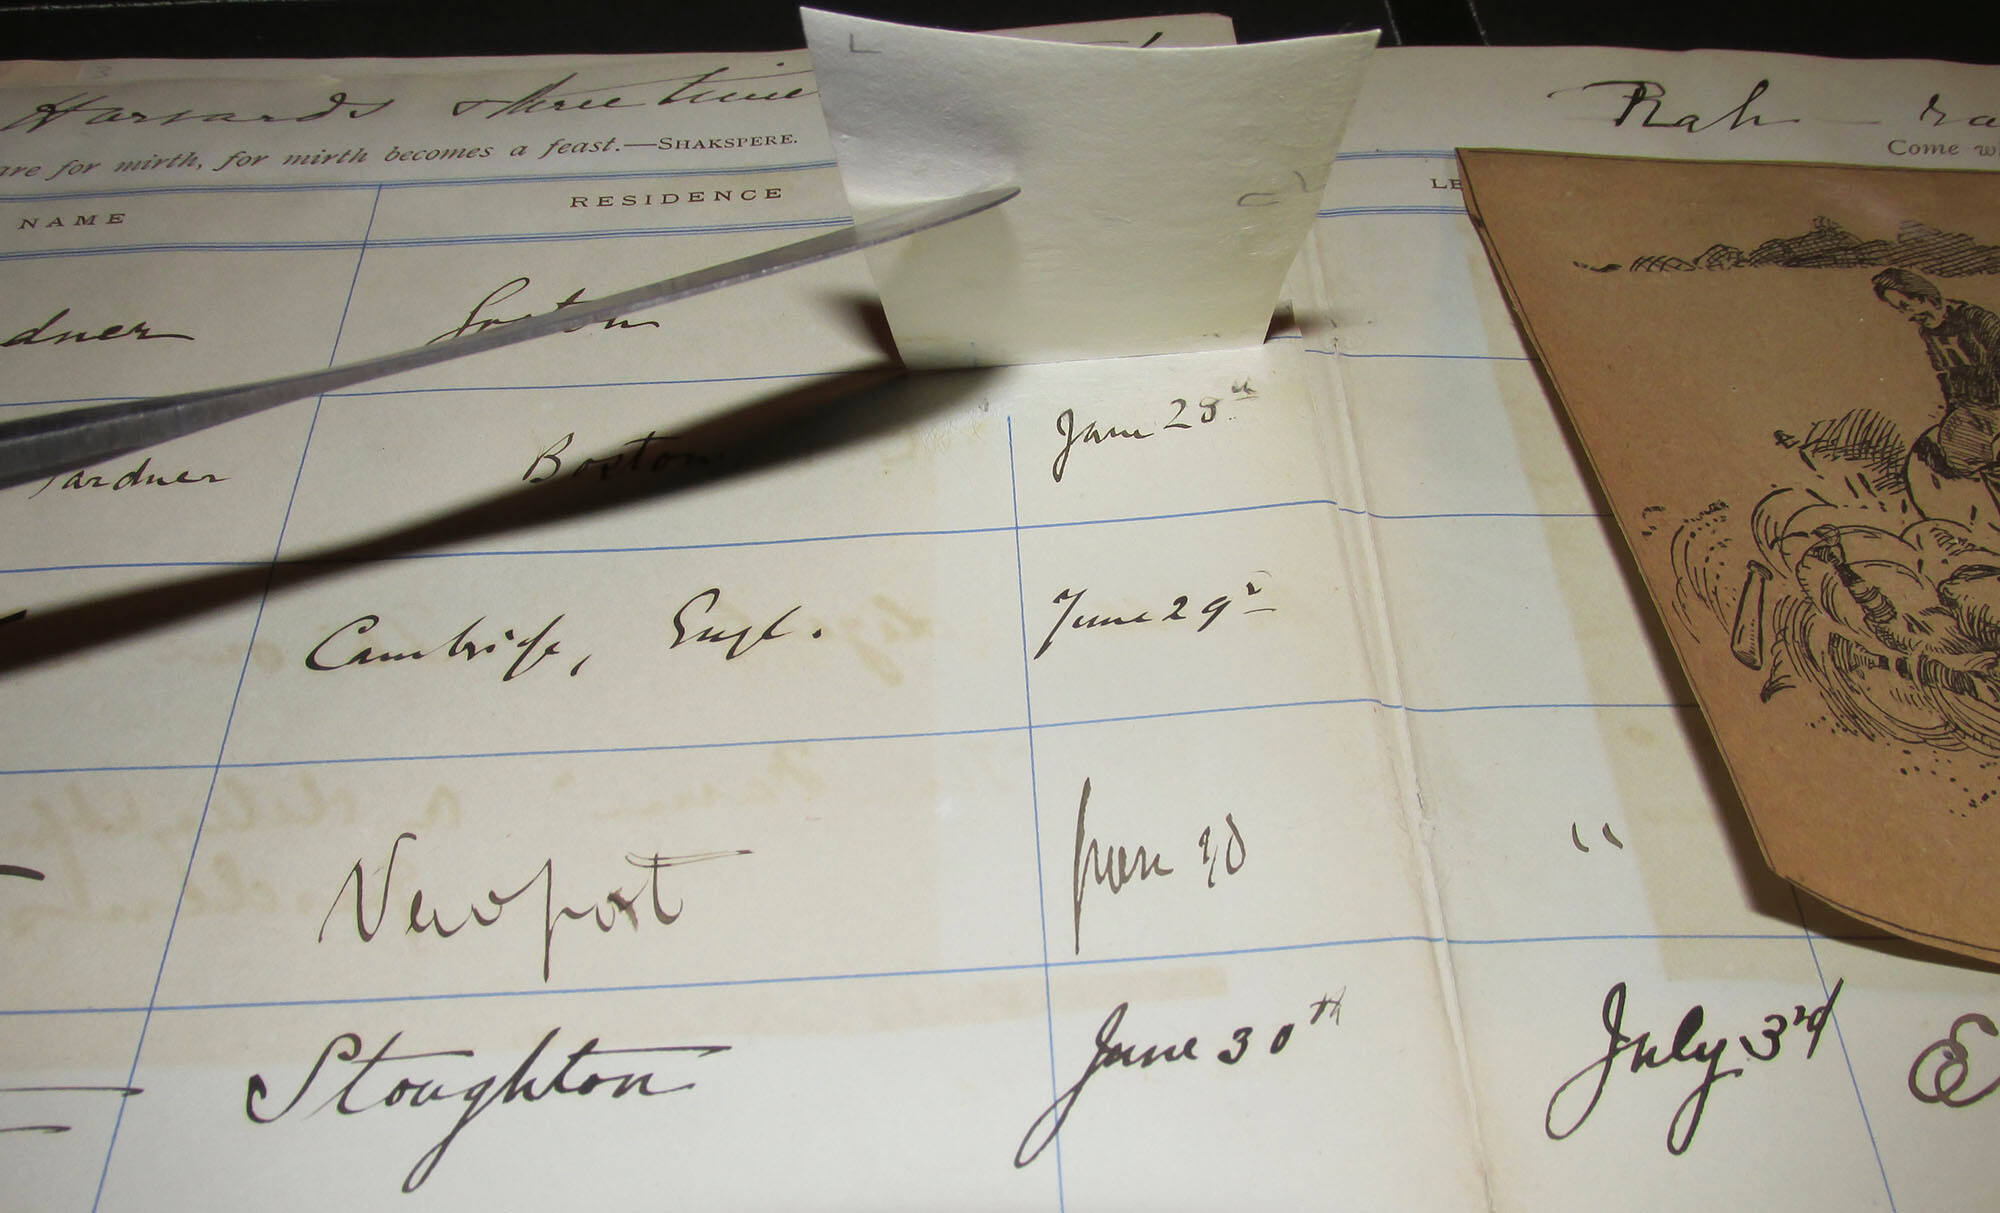 Harvards three time
Rah - ra
are for mirth, for mirth becomes a feast.—SHAKSPERE.
Come w
NAME RESIDENCE LE
dner Boston
ardner Boston June 28th
Cambridge, Engl. June 29th
Newport June 30 "
Stoughton June 30th July 3rd E
H